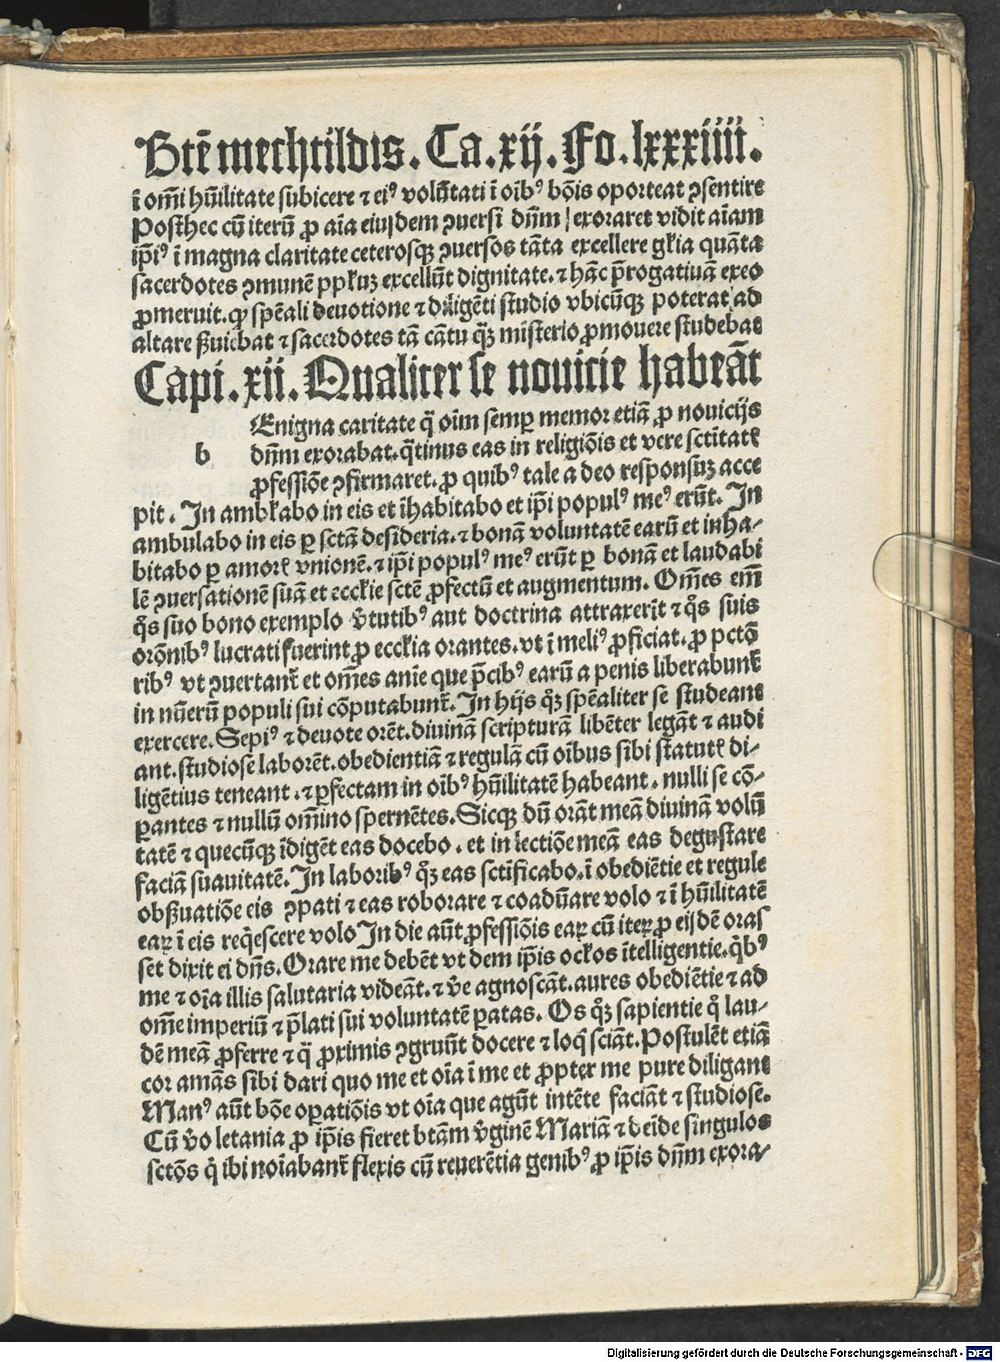 Btẽ mechtildis. Ca. xij. Fo. lxxxiiii.
ĩ om̃i hũilitate subicere ⁊ eiꝰ volũtati ĩ oĩbꝰ bõis oporteat ꝯsentire
Posthec cũ iterũ ꝓ aĩa eiusdem ꝯuersi dñm exoraret vidit aĩam
ip̃iꝰ ĩ magna claritate ceterosqꝫ ꝯuersos tãta excellere gl̃ia quãta
sacerdotes ꝯmunẽ ppl̃uꝫ excellũt dignitate. ⁊ hãc p̃rogatiuã exeo
ꝓmeruit. ꝙ sp̃eali deuotione ⁊ diligẽti studio vbicũqꝫ poterat ad
altare ẞuiebat ⁊ sacerdotes tã cãtu q̃ꝫ misterio ꝓmouere studebat
Capi. xii. Qualiter se nouicie habeãt
Enigna caritate q̃ oĩm semꝑ memor etiã ꝓ nouicijs
b dñm exorabat. q̃tinus eas in religiõis et vere sctĩtatꝭ
ꝓfessiõe ꝯfirmaret. ꝓ quibꝰ tale a deo responsuꝫ acce
pit. In ambl̃abo in eis et ĩhabitabo et ip̃i populꝰ meꝰ erũt. In
ambulabo in eis ꝑ sctã desideria. ⁊ bonã voluntatẽ earũ et inha-
bitabo ꝑ amorꝭ vnionẽ. ⁊ ip̃i populꝰ meꝰ erũt ꝑ bonã et laudabi
lẽ ꝯuersationẽ suã et eccl̃ie sctẽ ꝓfectũ et augmentum. Om̃es em̃
q̃s suo bono exemplo v̾tutibꝰ aut doctrina attraxerĩt ⁊ q̃s suis
orõnibꝰ lucrati fuerint ꝓ eccl̃ia orantes. vt ĩ meliꝰ ꝓficiat. ꝓ pctõ
ribꝰ vt ꝯuertant̃ et om̃es anĩe que p̃cibꝰ earũ a penis liberabunt̃
in nũerũ populi sui cõputabunt̃. In hijs qꝫ sp̃ealiter se studeant
exercere. Sepiꝰ ⁊ deuote orẽt. diuinã scripturã libẽter legãt ⁊ audi
ant. studiose laborẽt. obedientiã ⁊ regulã cũ oĩbus sibi statutꝭ di-
ligẽtius teneant. ⁊ ꝑfectam in oĩbꝰ hũilitatẽ habeant. nulli se cõ-
ꝑantes ⁊ nullũ om̃ino spernẽtes. Sicqꝫ dũ orãt meã diuinã volũ
tatẽ ⁊ quecũqꝫ ĩdigẽt eas docebo. et in lectiõe meã eas degustare
faciã suauitatẽ. In laboribꝰ qꝫ eas sctĩficabo. ĩ obediẽtie et regule
obẞuatiõe eis ꝯpati ⁊ eas roborare ⁊ coadiũare volo ⁊ ĩ hũilitatẽ
eaꝝ ĩ eis req̃escere volo In die aũt ꝓfessiõis eaꝝ cũ iteꝝ ꝓ eisdẽ oras
set dixit ei dñs. Orare me debẽt vt dem ip̃is ocl̃os ĩtelligentie. q̃bꝰ
me ⁊ oĩa illis salutaria videãt. ⁊ v̾e agnoscãt. aures obediẽtie ⁊ ad
om̃e imperiũ ⁊ p̃lati sui voluntatẽ ꝑatas. Os qꝫ sapientie q̃ lau-
dẽ meã ꝓferre ⁊ q̃ ꝓximis ꝯgruũt docere ⁊ loq̃ sciãt. Postulẽt etiã
cor amãs sibi dari quo me et oĩa ĩ me et ꝓpter me pure diligant
Manꝰ aũt bõe oꝑatiõis vt oĩa que agũt intẽte faciãt ⁊ studiose.
Cũ v̾o letania ꝓ ip̃is fieret btãm v̾ginẽ Mariã ⁊ deĩde singulos
sctõs q̃ ibi noĩabant̃ flexis cũ reuerẽtia genibꝰ ꝓ ip̃is dñm exora-
Digitalisierung gefördert durch die Deutsche Forschungsgemeinschaft - DFG